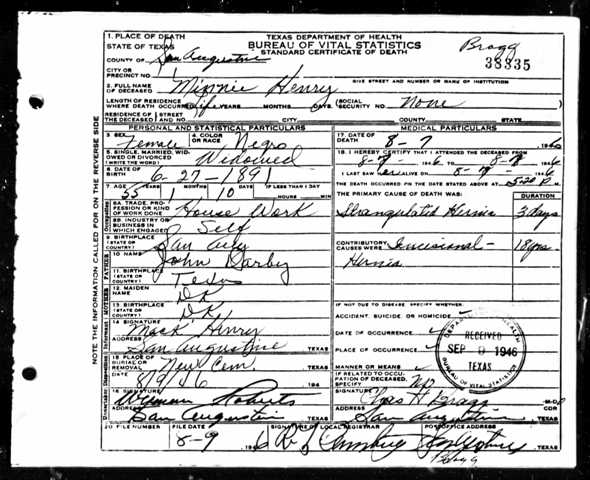 1. PLACE OF DEATH
STATE OF TEXAS
TEXAS DEPARTMENT OF HEALTH
BUREAU OF VITAL STATISTICS
STANDARD CERTIFICATE OF DEATH
Bragg
38335
COUNTY OF San Augustine
CITY OR PRECINCT NO.
GIVE STREET AND NUMBER OR NAME OF INSTITUTION
2. FULL NAME OF DECEASED Minnie Henry
LENGTH OF RESIDENCE WHERE DEATH OCCURRED Life YEARS MONTHS DAYS (SOCIAL SECURITY NO. None
RESIDENCE OF THE DECEASED { STREET AND NO. CITY COUNTY STATE
PERSONAL AND STATISTICAL PARTICULARS
MEDICAL PARTICULARS
3. SEX Female 4. COLOR OR RACE Negro
17. DATE OF DEATH 8-7 1946
5. SINGLE, MARRIED, WIDOWED OR DIVORCED (WRITE THE WORD) Widowed
18. I HEREBY CERTIFY THAT I ATTENDED THE DECEASED FROM
8-7 1946 TO 8-7 1946
6. DATE OF BIRTH 6-27-1891
I LAST SAW her ALIVE ON 8-7 1946
7. AGE 55 1 10 IF LESS THAN 1 DAY HOURS MIN
THE DEATH OCCURRED ON THE DATE STATED ABOVE AT 5:20 P. M.
THE PRIMARY CAUSE OF DEATH WAS: DURATION
8A. TRADE, PROFESSION OR KIND OF WORK DONE House Work
Strangulated Hernia 3 days
8B. INDUSTRY OR BUSINESS IN WHICH ENGAGED Self
9. BIRTHPLACE (STATE OR COUNTRY) San Aug
CONTRIBUTORY CAUSES WERE: Incisional- 18 yrs.
Hernia
10. NAME John Darby
11. BIRTHPLACE (STATE OR COUNTRY) Texas
12. MAIDEN NAME DK
13. BIRTHPLACE (STATE OR COUNTRY) DK
IF NOT DUE TO DISEASE SPECIFY WHETHER:
ACCIDENT, SUICIDE OR HOMICIDE
14. SIGNATURE Mack Henry
DATE OF OCCURRENCE
ADDRESS San Augustine TEXAS
PLACE OF OCCURRENCE
15. PLACE OF BURIAL OR REMOVAL New Cem.
MANNER OR MEANS
8/9/46 194
IF RELATED TO OCCUPATION OF DECEASED, SPECIFY No
16. SIGNATURE Wyman Roberts
SIGNATURE Chas H Bragg M.D.
ADDRESS San Augustine TEXAS
ADDRESS San Augustine TEXAS
20. FILE NUMBER FILE DATE SIGNATURE OF LOCAL REGISTRAR POST OFFICE ADDRESS
8-9 1946 TEXAS
Bragg
DEPARTMENT OF HEALTH
RECEIVED
SEP 9 1946
TEXAS
BUREAU OF VITAL STATISTICS
NOTE THE INFORMATION CALLED FOR ON THE REVERSE SIDE